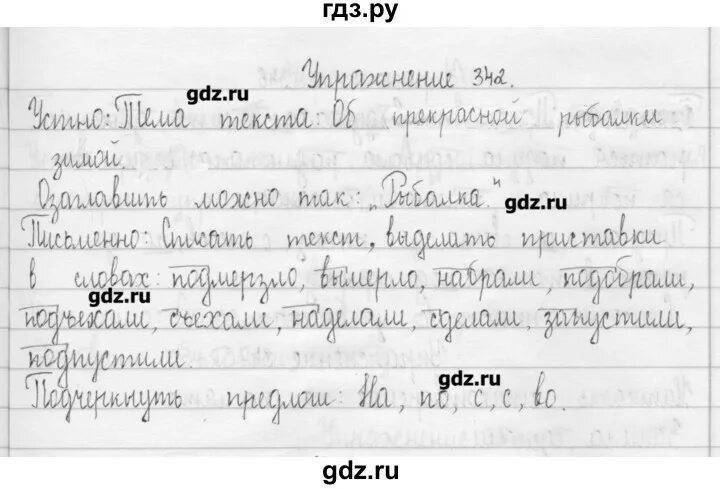 гдз.ру
Упражнение 342.
gdz.ru
Устно: Тема текста: Об прекрасной рыбалки
зимой.
Озаглавить можно так: „Рыбалка."
gdz.ru
Письменно: Списать текст, выделить приставки
в словах: подмерзло, вымерло, набрали, подобрали,
gdz.ru
подъехали, съехали, наделали, сделали, запустили,
подпустили.
gdz.ru
Подчеркнуть предлоги: На, по, с, с, во.
gdz.ru